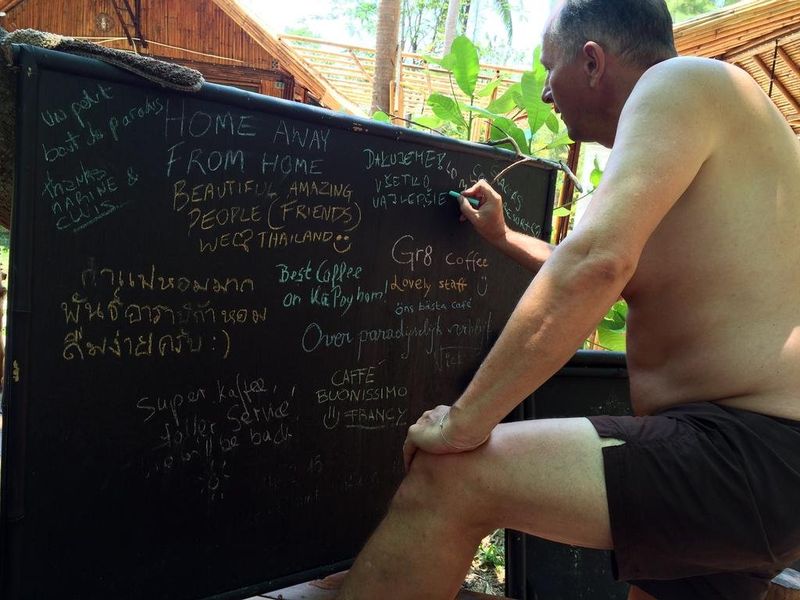 Un petit
bout de paradis
thanks
MARINE &
CLUIS
HOME AWAY
FROM HOME
BEAUTIFUL AMAZING
PEOPLE (FRIENDS)
THAILAND
DAKUJEME
VŠETKO
NAJLEPŠIE
กาแฟหอมมาก
พันธ์อาราบิก้าหอม
ดื่มง่ายครับ :)
Best Coffee
on Ko Phayam!
Gr8 coffee
Lovely staff
öns bästa café
Over paradijselijk verblijf
CAFFÉ
BUONISSIMO
FRANCY
Super Kaffee,
toller Service,
we'll be back